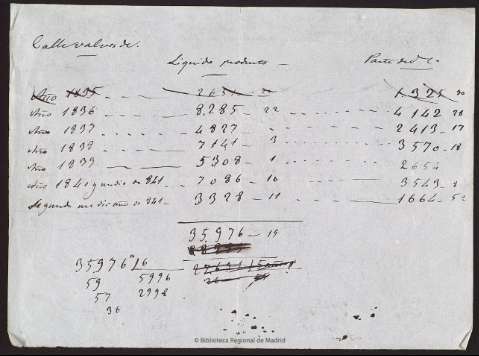 Calle valverde.
Liquido producto — Parte de D.
Año 1835
Año 1836 8.285 - 22 4142 28
Año 1837 4827 2413 - 17
Año 1838 7141 3 3570 - 18
Año 1839 5308 1 2654
Año 1840 y medio de 841 7086 - 16 3543 - 8
Segundo medio año de 841 3328 - 11 1664 - 5
35,976 - 15
35976 16
59 5996
57 2998
36
© Biblioteca Regional de Madrid